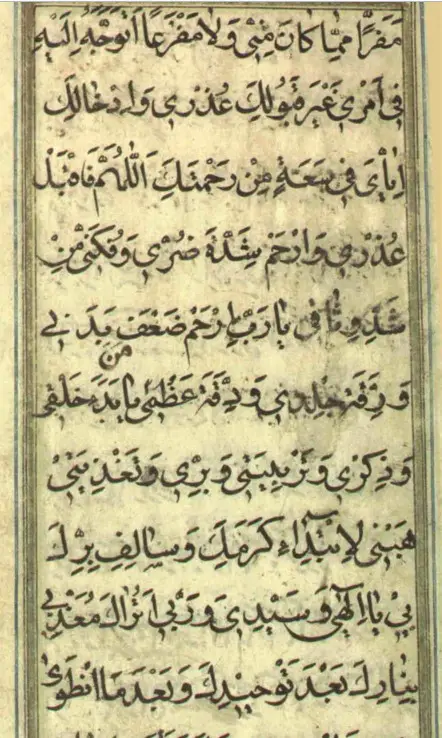 مَفَرًّا مِمَّا كَانَ مِنّٖى وَلَا مَفْزَعًا اَتَوَجَّهُ اِلَيْهِ
فٖى اَمْرٖى غَيْرَ قَبُولِكَ عُذْرٖى وَاِدْخَالِكَ
اِيَّاىَ فٖى سَعَةٍ مِنْ رَحْمَتِكَ اَللّٰهُمَّ فَاقْبَلْ
عُذْرٖى وَارْحَمْ شِدَّةَ ضُرّٖى وَفُكَّنٖى مِنْ
شَدِّ وِثَاقٖى يَا رَبِّ ارْحَمْ ضَعْفَ بَدَنٖى
وَرِقَّةَ جِلْدٖى وَدِقَّةَ عَظْمٖى يَا مَنْ بَدَءَ خَلْقٖى
وَذِكْرٖى وَتَرْبِيَتٖى وَبِرّٖى وَتَغْذِيَتٖى
هَبْنٖى لِاِبْتِدَاءِ كَرَمِكَ وَسَالِفِ بِرِّكَ
بٖى يَا اِلٰهٖى وَسَيِّدٖى وَرَبّٖى اَتُرَاكَ مُعَذِّبٖى
بِنَارِكَ بَعْدَ تَوْحٖيدِكَ وَبَعْدَ مَا انْطَوٰى